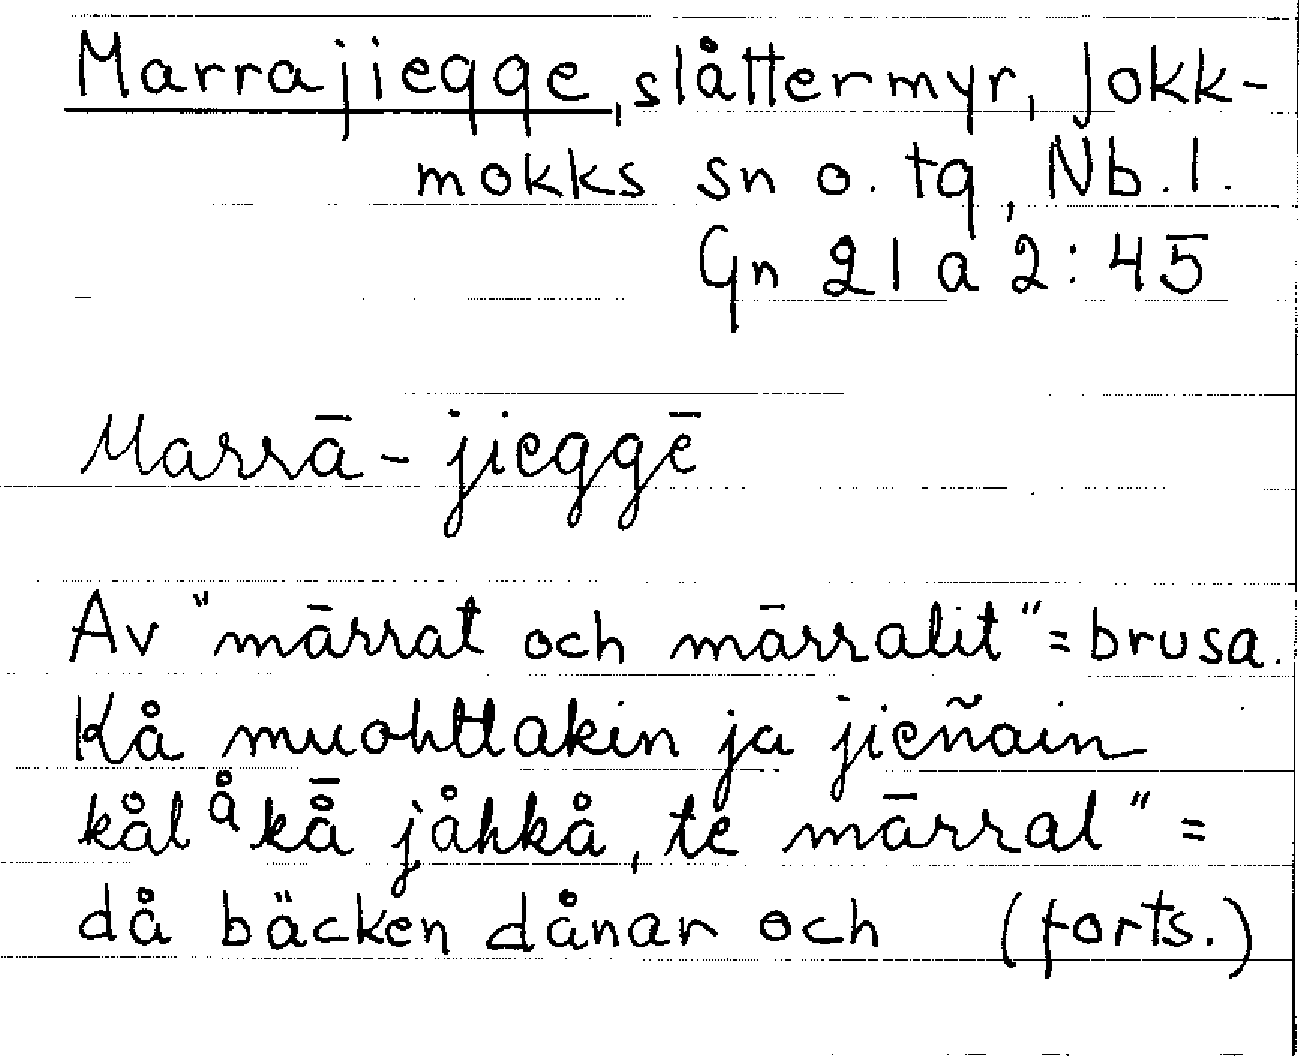 Marrajiegge, slåttermyr, Jokk-
mokks sn o. tg, Nb. l.
Gn 21 a 2:45
Marrā-jieggē
Av "mārrat och mārralit" = brusa.
Kå muohttakin ja jieñain
kål å kå̄ jåhkå, te mārral" =
då bäcken dånar och (forts.)